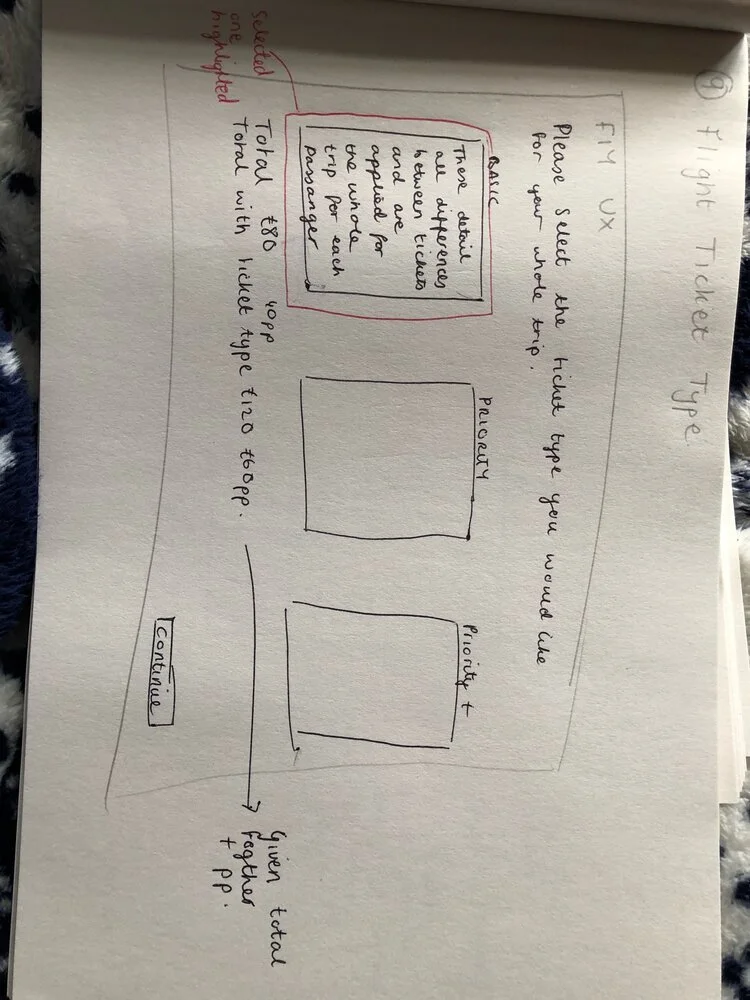 9 Flight Ticket Type.
FLY UX
Please Select the ticket type you would like
for your whole trip.
BASIC
These detail
all differences
between tickets
and are
applied for
the whole
trip for each
passanger
PRIORITY
Priority +
Selected
one
highlighted
Total £80 40pp
Total with ticket type £120 £60pp.
Given total
togther
+ pp.
Continue